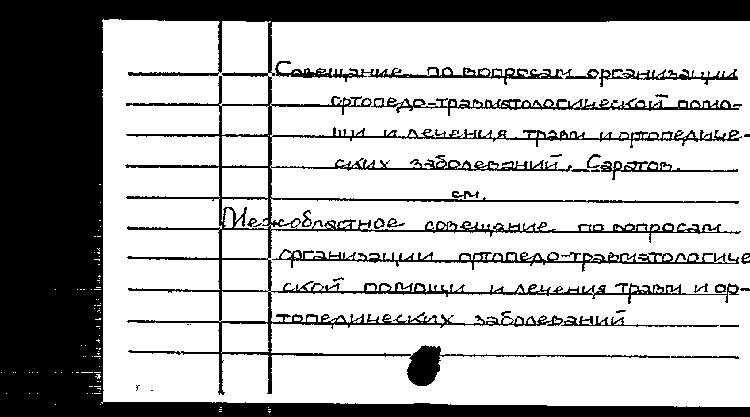 Совещание по вопросам организации
ортопедо-травматологической помо-
щи и лечения травм и ортопедиче-
ских заболеваний. Саратов.
см.
Межобластное совещание по вопросам
организации ортопедо-травматологиче
ской помощи и лечения травм и ор-
топедических заболеваний